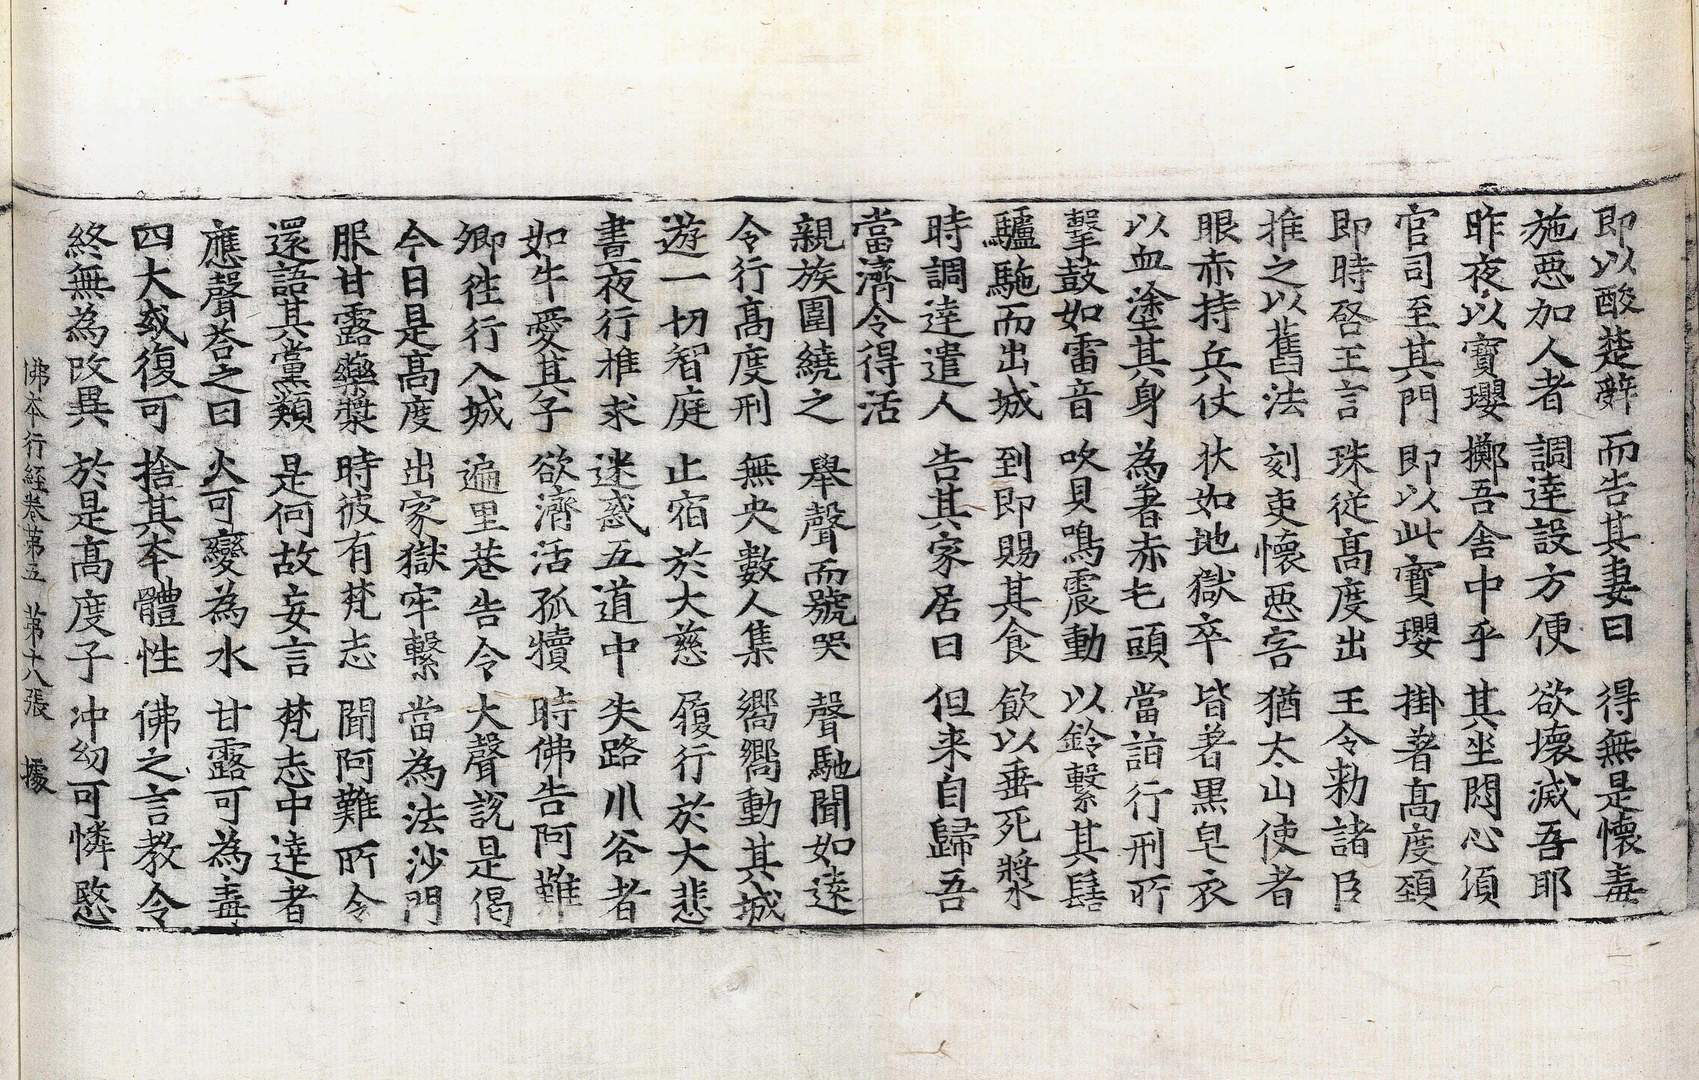 即以酸楚辭 而告其妻曰 得無是懷毒
施惡加人者 調達設方便 欲壞滅吾耶
昨夜以寶瓔 擲吾舍中乎 其坐悶心須
官司至其門 即以此寶瓔 掛著高度頚
即時啓王言 珠從高度出 王令勑諸臣
推之以舊法 刻吏懷惡害 猶太山使者
眼赤持兵仗 状如地獄卒 皆著黒皁衣
以血塗其身 為著赤毛頭 當詣行刑所
擊鼓如雷音 吹貝鳴震動 以鈴繫其髻
驢馳而出城 到即賜其食 飲以垂死漿
時調達遣人 告其家居曰 但来自歸吾
當濟令得活
親族圍繞之 舉聲而號哭 聲馳聞如遠
令行高度刑 無央數人集 嚮嚮動其城
遊一切智庭 止宿於大慈 履行於大悲
晝夜行推求 迷惑五道中 失路川谷者
如牛愛其子 欲濟活孤犢 時佛告阿難
卿徃行入城 遍里巷告令 大聲說是偈
今日是高度 出家獄牢繫 當為法沙門
服甘露藥漿 時彼有梵志 聞阿難所令
還語其黨類 是何故妄言 梵志中達者
應聲荅之曰 火可變為水 甘露可為毒
四大或復可 捨其本體性 佛之言教令
終無為改異 於是高度子 冲幼可憐愍
佛本行経卷第五 第十八張 據